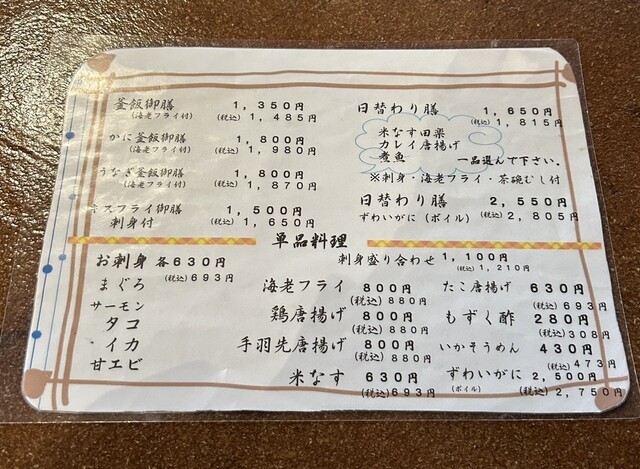 釜飯御膳 1,350円
(海老フライ付) (税込) 1,485円
かに釜飯御膳 1,800円
(海老フライ付) (税込) 1,980円
うなぎ釜飯御膳 1,800円
(海老フライ付) (税込) 1,870円
キスフライ御膳 1,500円
刺身付 (税込) 1,650円
日替わり膳 1,650円
(税込) 1,815円
米なす田楽
カレイ唐揚げ
煮魚 一品選んで下さい。
※刺身・海老フライ・茶碗むし付
日替わり膳 2,550円
ずわいがに(ボイル) (税込) 2,805円
単品料理
お刺身 各630円
(税込)693円
まぐろ
サーモン
タコ
イカ
甘エビ
刺身盛り合わせ 1,100円
(税込) 1,210円
海老フライ 800円
(税込)880円
鶏唐揚げ 800円
(税込)880円
手羽先唐揚げ 800円
(税込)880円
米なす 630円
(税込)693円
たこ唐揚げ 630円
(税込)693円
もずく酢 280円
(税込)308円
いかそうめん 430円
(税込)473円
ずわいがに 2,500円
(ボイル) (税込) 2,750円